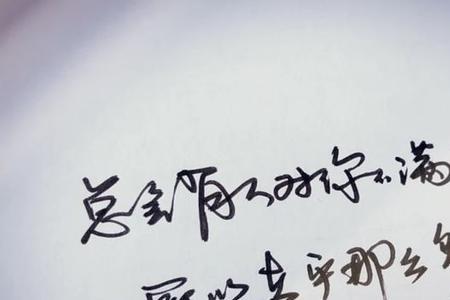 总会有人对你不满
所以在乎那么多